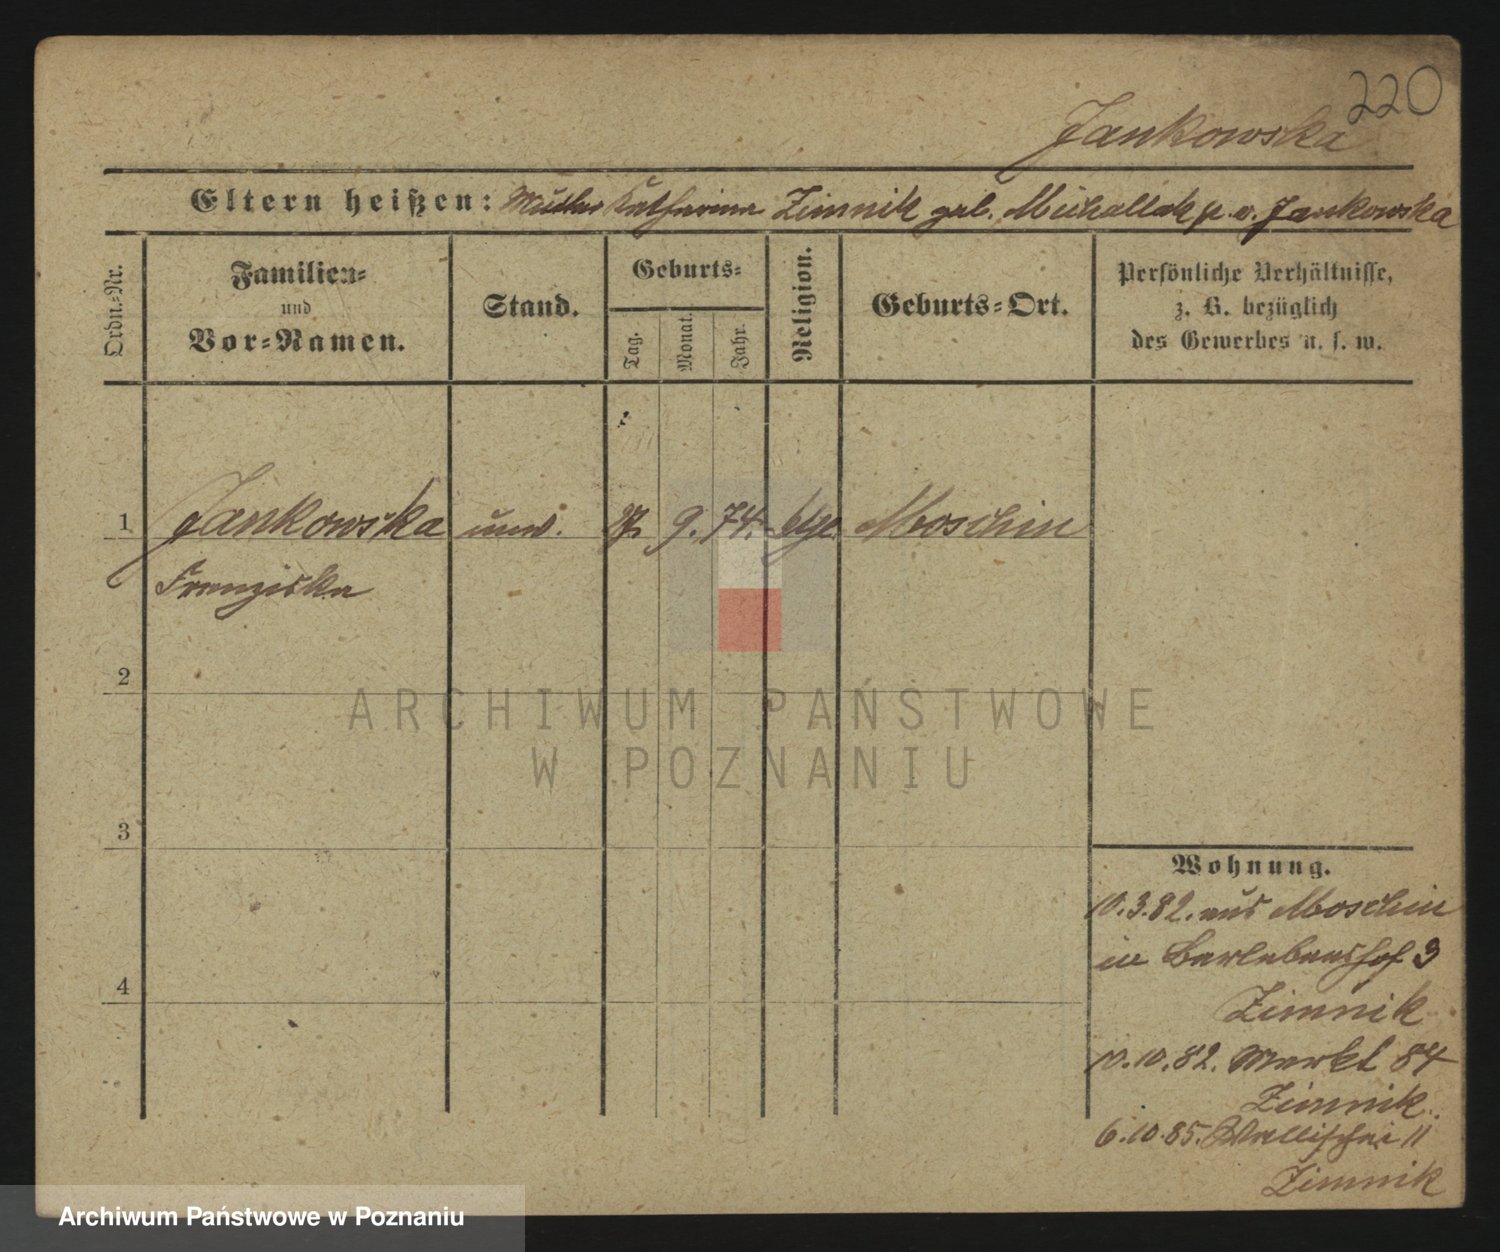 220
Jankowska
Eltern heißen: Mutter Katharina Zimnik geb. Michallak p. v. Jankowska
Ordn.-Nr.
Familien-
und
Vor-Namen.
Stand.
Geburts-
Tag.
Monat.
Jahr.
Religion.
Geburts-Ort.
Persönliche Verhältnisse,
z. B. bezüglich
des Gewerbes u. s. w.
1 Jankowska unv. 9. 74. Moschin
Franziska
2
3
4
Wohnung.
10.3.82. aus Moschin
in Berlebenshof 3
Zimnik
10.10.82. Markt 84
Zimnik
6.10.85. Wallischei 11
Zimnik
ARCHIWUM PAŃSTWOWE
W POZNANIU
Archiwum Państwowe w Poznaniu